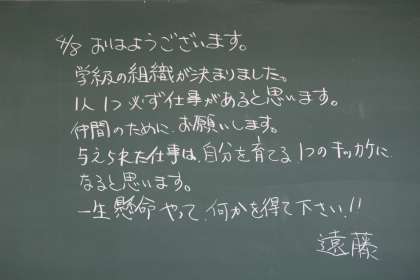 4/8 おはようございます。
学級の組織が決まりました。
1人1つ必ず仕事があると思います。
仲間のために、お願いします。
与えられた仕事は、自分を育てる1つのキッカケに
なると思います。
一生懸命やって、何かを得て下さい!!
遠藤